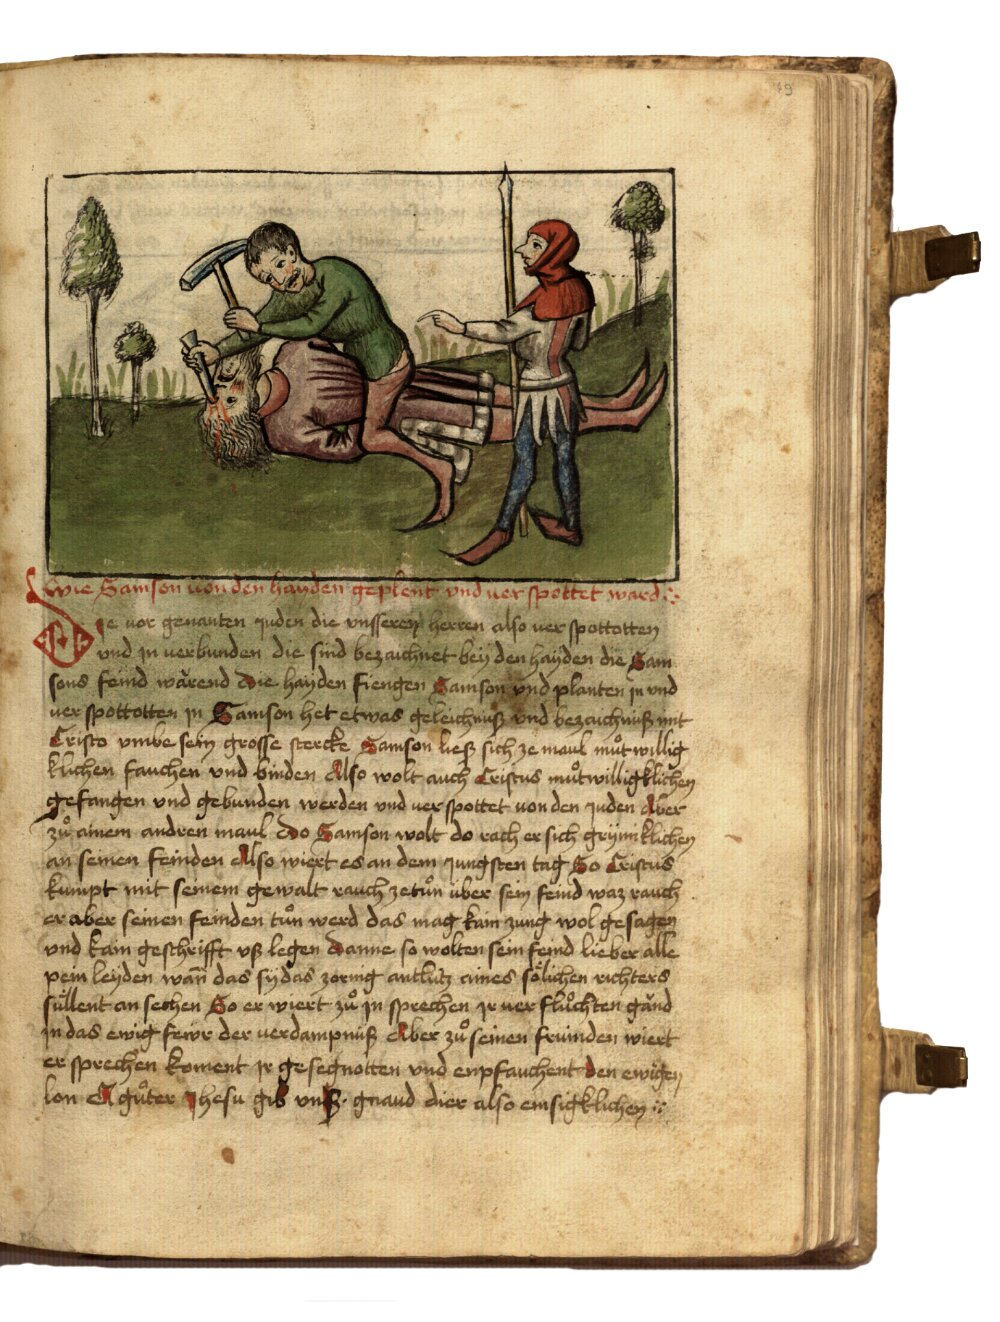 19
Wie Samson von den hayden geplent vnd ver spottet ward
Die vor genanten juden die vnsseren herren also ver spottotten
vnd jn verbunden die sind bezaichnet bey den hayden die Sam
sons feind wǎrend Die hayden fiengen Samson vnd planten jn vnd
ver spottotten jn Samson het etwas geleichnuß vnd bezaichnuß mit
Cristo vmbe sein grosse stercke Samson ließ sich ze maul muͦtwillig
klichen fauchen vnd binden Also wolt auch Cristus muͦtwilligklichen
gefangen vnd gebunden werden vnd ver spottet von den juden Aber
zuͦ ainem andren maul Do Samson wolt do rach er sich grymklichen
an seinen feinden Also wiert es an dem jungsten tag So Cristus
kumpt mit seinem gewalt rauch ze tuͦn über sein feind waz rauch
er aber seinen feinden tuͦn werd das mag kain zung wol gesagen
vnd kain geschrifft vß legen Danne so wolten sein feind lieber alle
pein leyden wañ das sy das zornig antlütz aines soͤlichen richters
süllent an sechen So er wiert zuͦ jn sprechen jr ver fluͦchten gǎnd
jn das ewig fewr der verdampnuß Aber zuͦ seinen fruinden wiert
er sprechen koment jr gesegnotten vnd enpfauchent den ewigen
lon O guͦter Jhesu gib vnß gnaud dier also einsigklichen